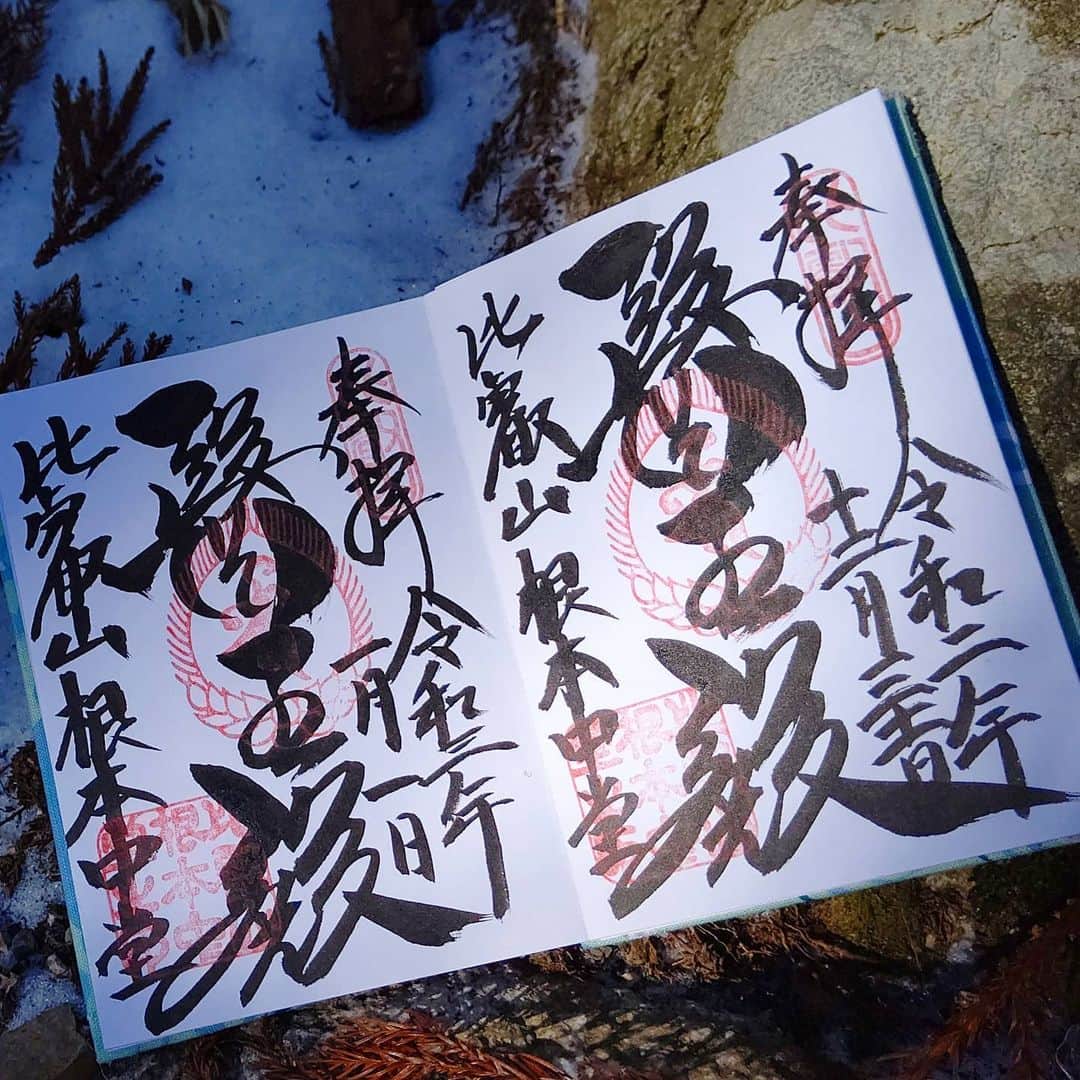 奉拝
令和二年
十二月三十一日
醫王殿
比叡山根本中堂
奉拝
令和三年
一月一日
醫王殿
比叡山根本中堂